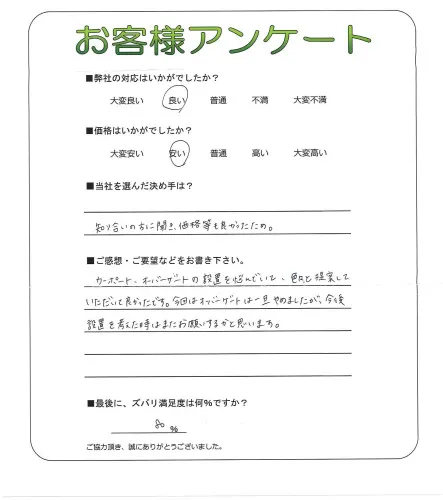 お客様アンケート
■弊社の対応はいかがでしたか？
大変良い 良い 普通 不満 大変不満
■価格はいかがでしたか？
大変安い 安い 普通 高い 大変高い
■当社を選んだ決め手は？
知り合いの方に聞き、価格等も良かったため。
■ご感想・ご要望などをお書き下さい。
カーポート、オーバーゲートの設置を悩んでいて、色々と提案して
いただいて良かったです。今回はオーバーゲートは一旦やめましたが、今後
設置を考えた時はまたお願いするかと思います。
■最後に、ズバリ満足度は何%ですか？
80 %
ご協力頂き、誠にありがとうございました。